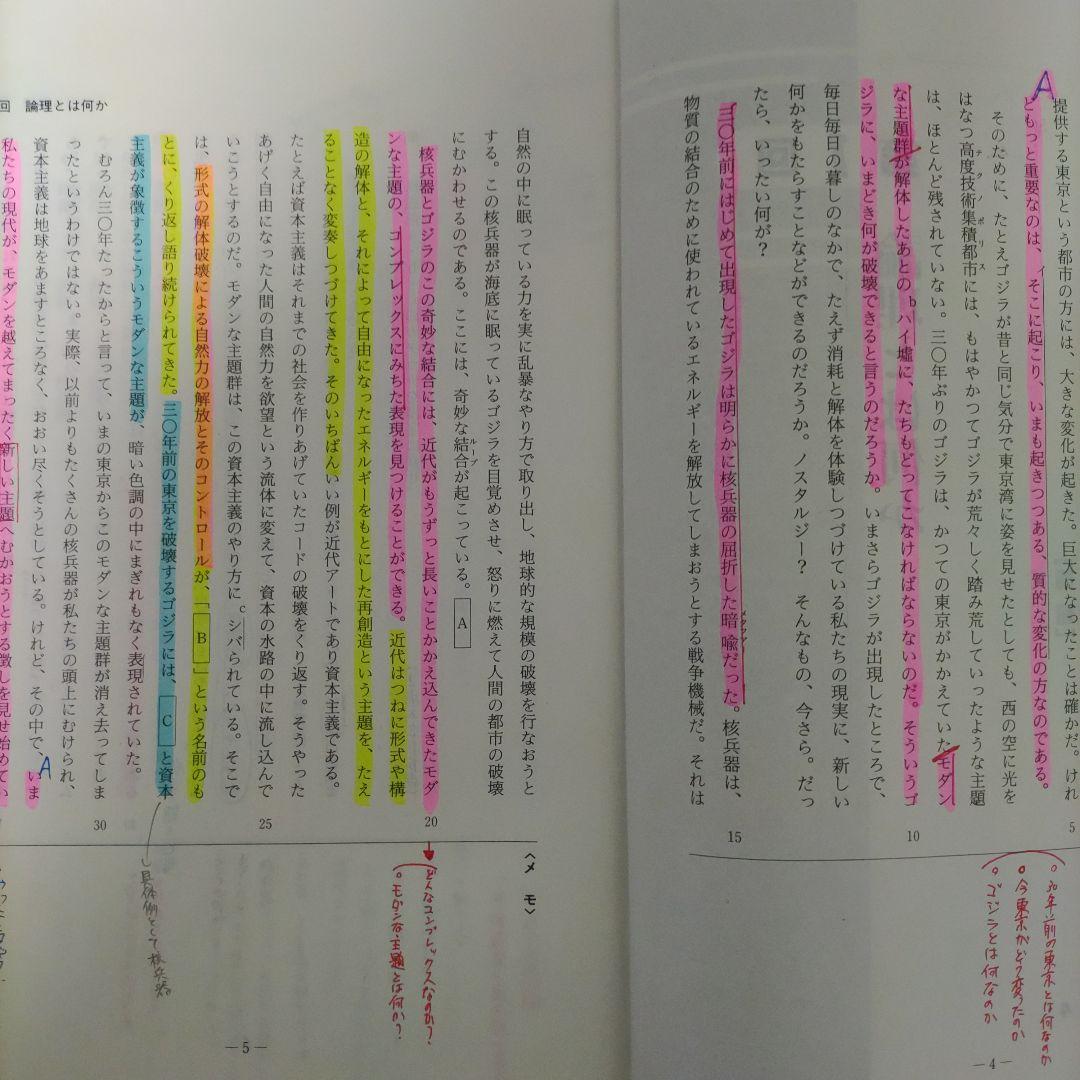 提供する東京という都市の方には、大きな変化が起きた。巨大になったことは確かだ。けれ
どもっと重要なのは、そこに起こり、いまも起きつつある、質的な変化の方なのである。
そのために、たとえゴジラが昔と同じ気分で東京湾に姿を見せたとしても、西の空に光を
はなつ高度技術集積都市には、もはやかつてゴジラが荒々しく踏み荒していったような主題
テクノポリス
は、ほとんど残されていない。三〇年ぶりのゴジラは、かつての東京がかかえていたモダン
な主題群が解体したあとのハイ墟に、たちもどってこなければならないのだ。そういうゴ
ジラに、いまどき何が破壊できると言うのだろうか。いまさらゴジラが出現したところで、
毎日毎日の暮しのなかで、たえず消耗と解体を体験しつづけている私たちの現実に、新しい
何かをもたらすことなどができるのだろうか。ノスタルジー？ そんなもの、今さら。だっ
たら、いったい何が？
三〇年前にはじめて出現したゴジラは明らかに核兵器の屈折した暗喩だった。核兵器は、
メタファー
物質の結合のために使われているエネルギーを解放してしまおうとする戦争機械だ。それは
A
イ
b
5
10
15
○30年前の東京とは何なのか
○今東京がどう変ったのか
○ゴジラとは何なのか
―4―
自然の中に眠っている力を実に乱暴なやり方で取り出し、地球的な規模の破壊を行なおうと
する。この核兵器が海底に眠っているゴジラを目覚めさせ、怒りに燃えて人間の都市の破壊
にむかわせるのである。ここには、奇妙な結合が起こっている。 A
ループ
核兵器とゴジラのこの奇妙な結合には、近代がもうずっと長いことかかえ込んできたモダ
ンな主題の、コンプレックスにみちた表現を見つけることができる。近代はつねに形式や構
造の解体と、それによって自由になったエネルギーをもとにした再創造という主題を、たえ
ることなく変奏しつづけてきた。そのいちばんいい例が近代アートであり資本主義である。
たとえば資本主義はそれまでの社会を作りあげていたコードの破壊をくり返す。そうやった
あげく自由になった人間の自然力を欲望という流体に変えて、資本の水路の中に流し込んで
いこうとするのだ。モダンな主題群は、この資本主義のやり方にシバられている。そこで
c
は、形式の解体破壊による自然力の解放とそのコントロールが、「 B 」という名前のも
とに、くり返し語り続けられてきた。三〇年前の東京を破壊するゴジラには、 C と資本
主義が象徴するこういうモダンな主題が、暗い色調の中にまぎれもなく表現されていた。
むろん三〇年たったからと言って、いまの東京からこのモダンな主題群が消え去ってしま
ったというわけではない。実際、以前よりもたくさんの核兵器が私たちの頭上にむけられ、
資本主義は地球をあますところなく、おおい尽くそうとしている。けれど、その中で、いま
私たちの現代が、モダンを越えてまったく新しい主題へむかおうとする徴しを見せ始めてい
A
20
25
30
回 論理とは何か
〈メ モ〉
どんなコンプレックスなのか？
○モダンな主題とは何か？
具体例として核兵器
―5―